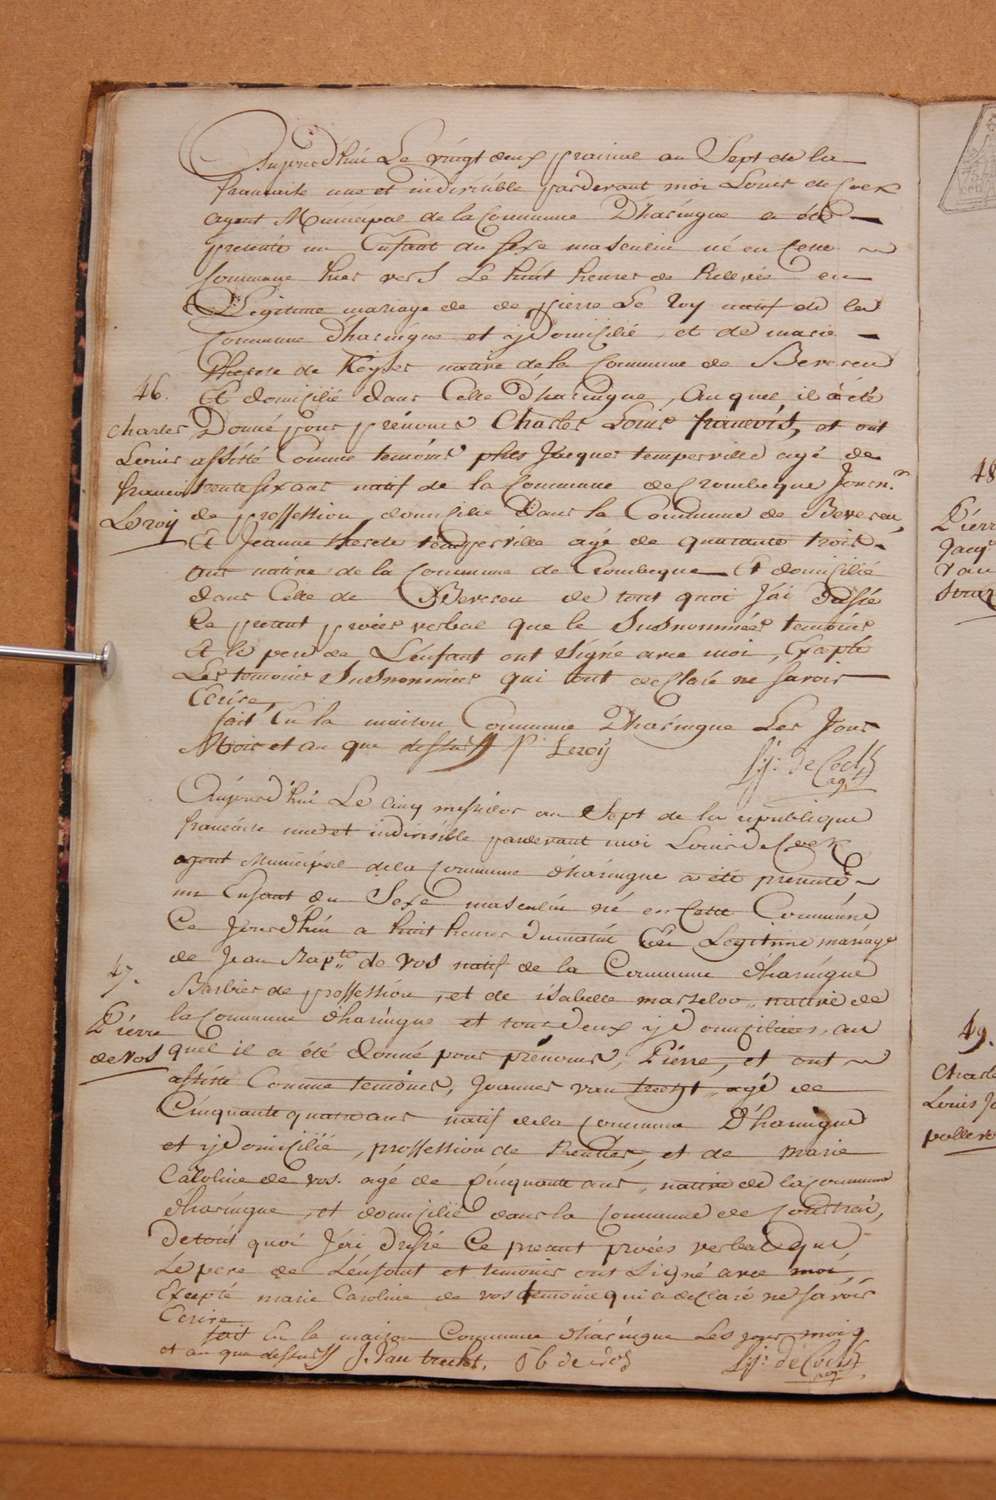 Aujourd'hui Le vingt deux prairial an Sept de la
francaise une et indivisible pardevant moi Louis de Cock
agent Municipal de la Commune D'haringue a été
presenté un Enfant du Sexe masculin né en Cette
Commune hier vers Le huit heures de Rélevés en
Légitime mariage de de pierre Le Roy natif de la
Commune d'haringue et ij Domicilié, et de marie
Therese de Keyser native de la Commune de Beveren
46.
Et domicilié dans Celle D'haringue, Auquel il a été
charles
Donné pour prénoms Charles Louis francois, et ont
Louis
assisté Comme temoins Jacques temperville agé de
francois
trente six ans natif de la Commune de Crombeque Journ.r
Le roij
de proffession domicilié Dans la Commune de Beveren,
Et Jeanne therese temperville agé de quarante trois
Ans native de la Commune de Crombeque Et domicilié
dans Celle de Beveren de tout quoi J'ai Dressé
Le present procès verbal que le Susnommées temoins
et le pere de L'enfant ont Signé avec moi, Excepté
Les temoins Susnommées qui ont declaré ne savoir
Ecrire,
fait En la maison Commune D'haringue Les Jour
Mois et an que dessus P: Leroij
L: De Cock
ag.t
Aujourd'hui Le cinq messidor an Sept de la republique
francaise une et indivisible pardevant moi Louis De Cock
agent Municipal de la Commune d'haringue a été presenté
un Enfant du Sexe masculin né en Cette Commune
Ce Jourd'hui a huit heures du matin En Legitime mariage
de Jean Bap.te de Vos natif de la Commune d'haringue
47.
Barbier de proffession, et de isabelle marselou, native de
Pierre
la Commune d'haringue et tous Deux ij Domiciliées, au
de Vos
quel il a été donné pour prénoms, Pierre, et ont
assisté Comme temoins, Joannes van trecht, agé de
Cinquante quatre ans natif de la Commune D'haringue
et ij Domicilié, proffession de Rentier, et de Marie
Caroline de vos. agé de Cinquante ans, native de la Commune
d'haringue, et domicilié dans la Commune de
De tout quoi J'ai Dressé Ce present procès verbal que
Le pere de L'enfant et temoins ont Signé avec moi,
Excepté marie Caroline de vos temoine qui a declaré ne savoir
Ecrire
fait En la maison Commune d'haringue Les jour mois
et an que dessus J. Van trecht, J b de Vos
L: De Cock
ag.t
48
Pierre
Jacq.
Van
49.
Charle
Louis Jo